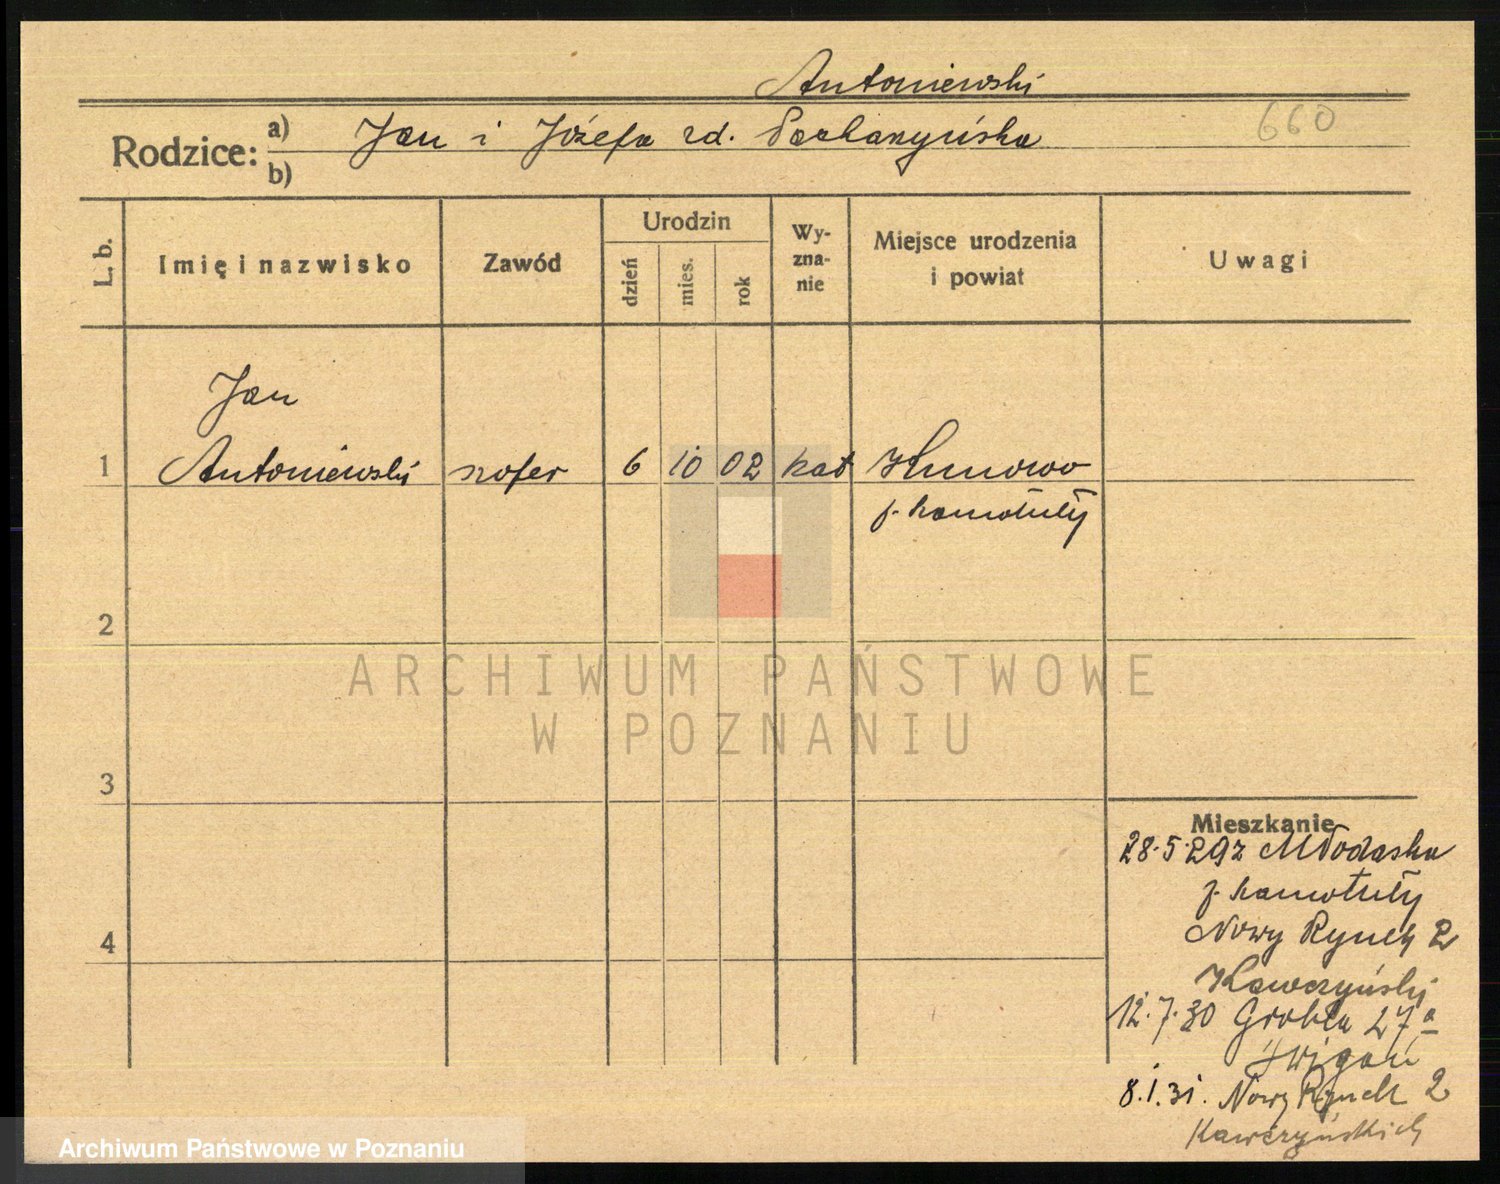 Antoniewski
660
Rodzice: a) Jan i Józefa zd.
b)
L. b.
Imię i nazwisko
Zawód
Urodzin
dzień
mies.
rok
Wy-
zna-
nie
Miejsce urodzenia
i powiat
Uwagi
Jan
1 Antoniewski szofer 6 10 02 kat
p. Szamotuły
2
ARCHIWUM PAŃSTWOWE
W POZNANIU
3
4
Mieszkanie
28.5.29 z Młodaska
p. Szamotuły
Nowy Rynek 2
Kawczyński
12.7.30 Grobla 27a
8.1.31. Nowy Rynek 2
Kawczyńskich
Archiwum Państwowe w Poznaniu